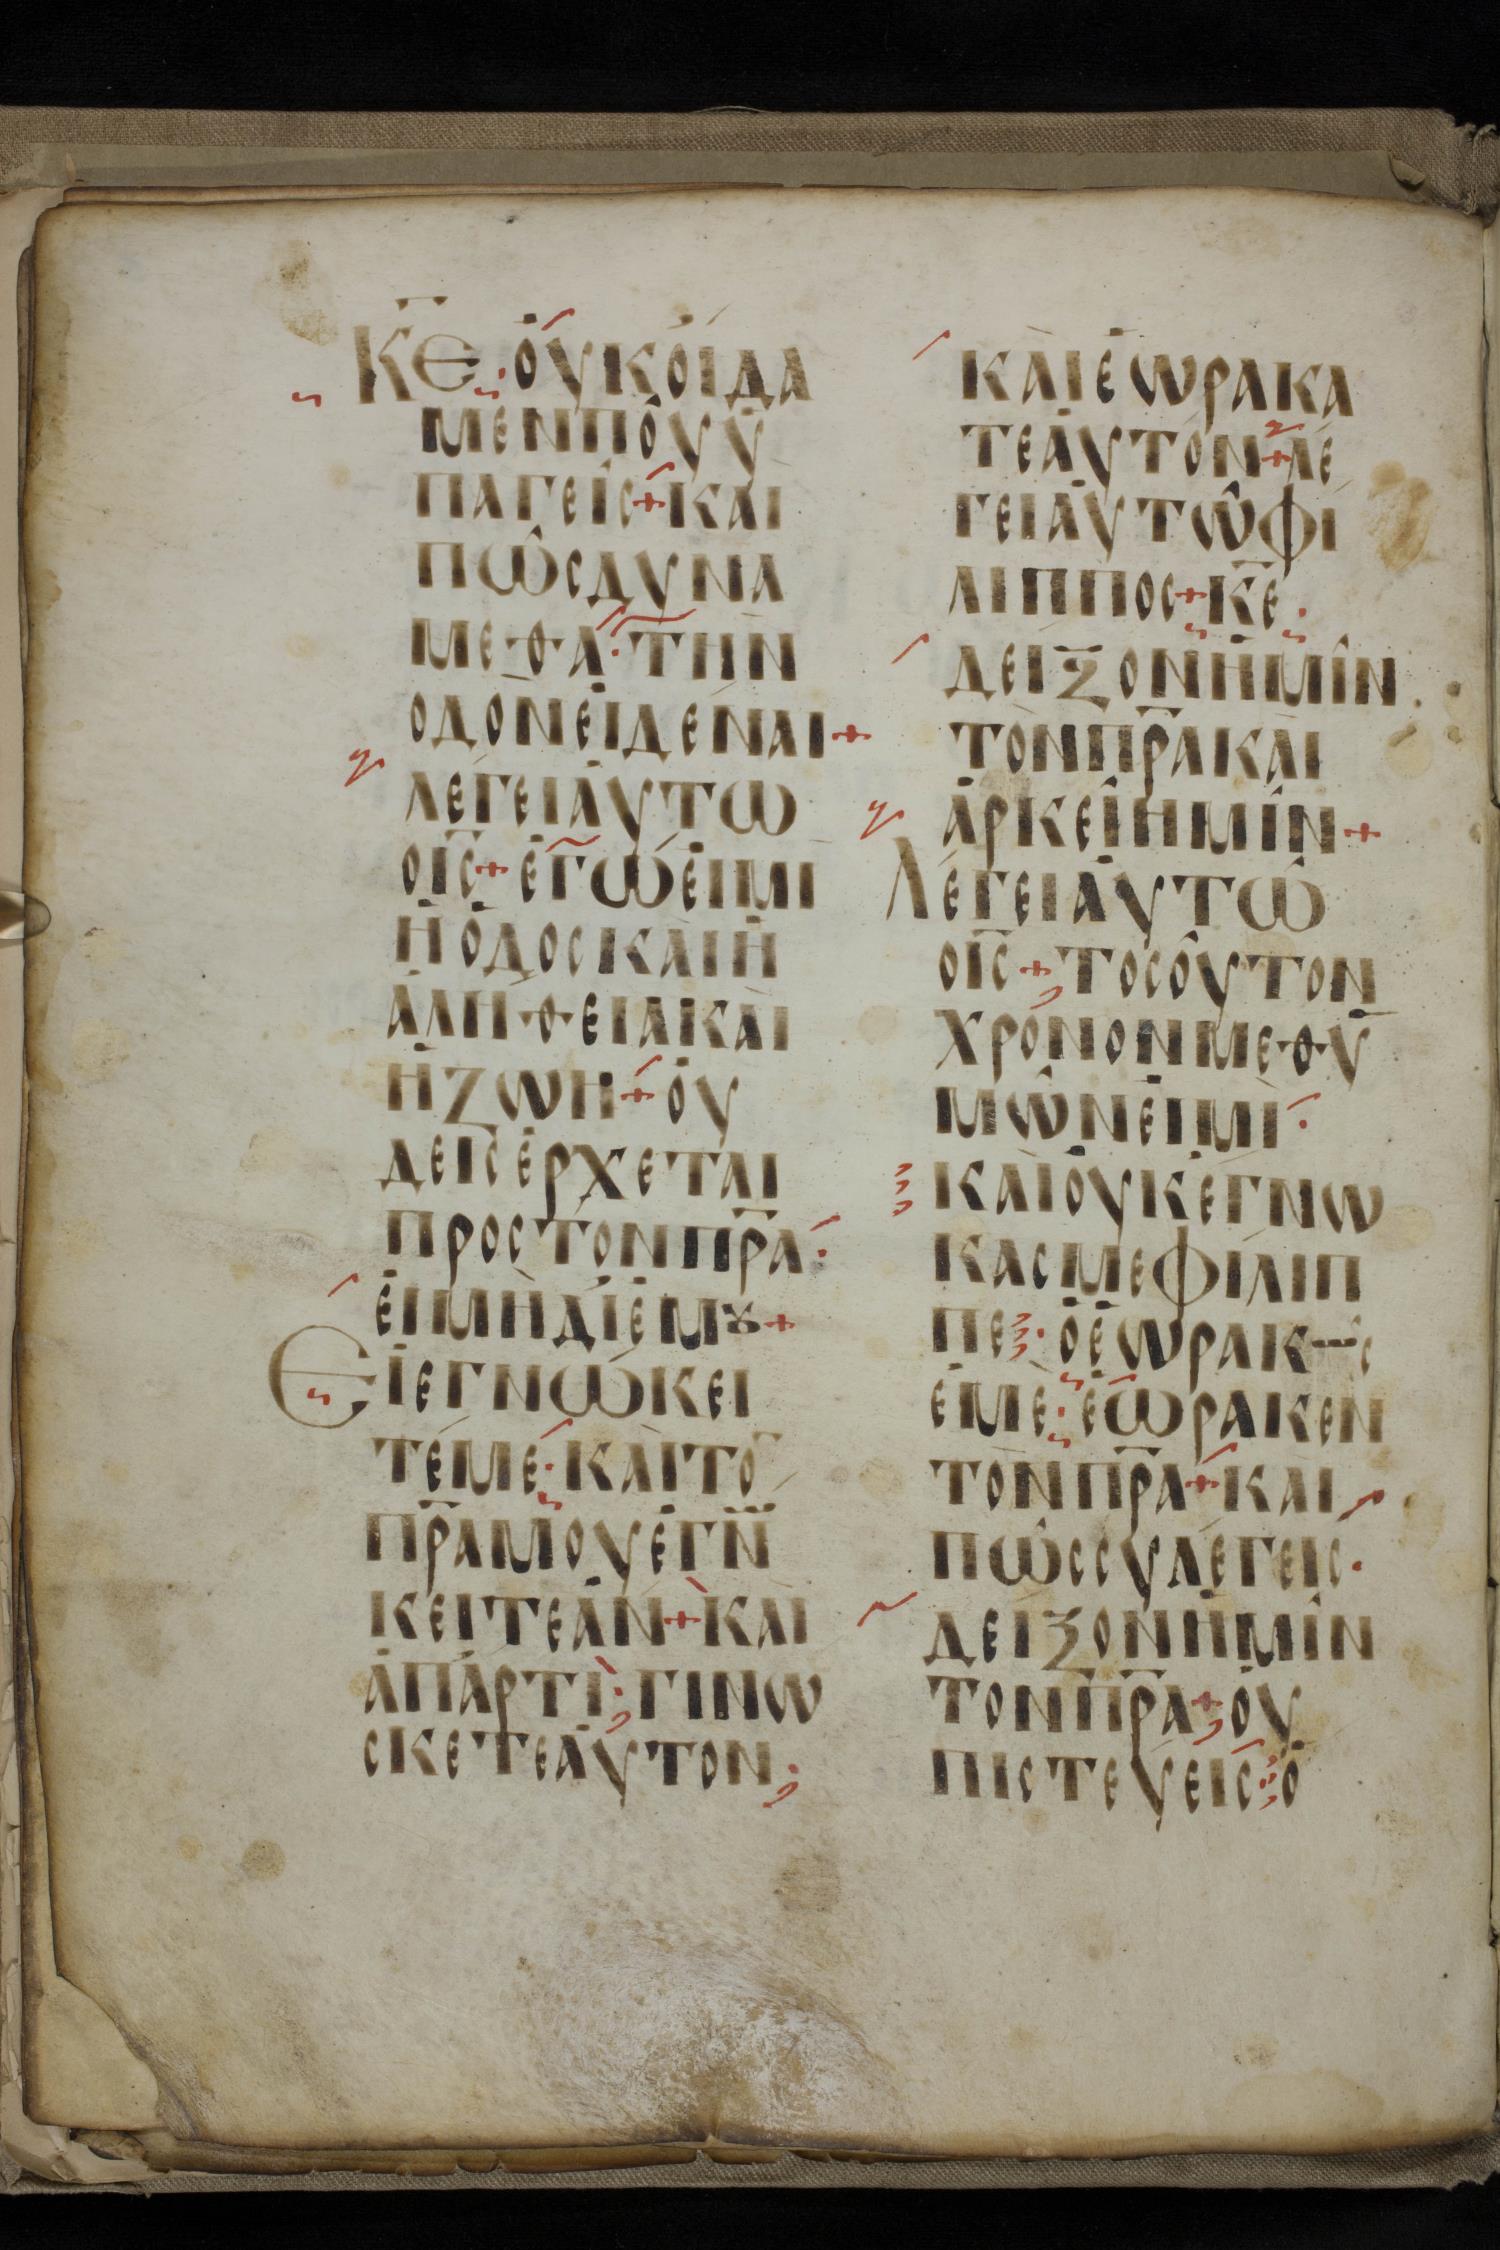 Κ̅Ε̅· ὀυκὀίδα
μενποῦ ὑ
παγεῖς + και
πῶς δυνα
μεθα· τὴν
οδὸνἐιδέναι +
λέγειἀυτω
οι̅ς̅ + ἐγώἐιμι
ἡὁδοςκαὶἡ
ἀλήθειακαὶ
ἡζωη + ὀυ
δεισἐρχεται
προςτονπ̅ρ̅α̅·
ἐιμὴδἰἐμȣ +
Ειεγνώκει
τέμέ· καὶτο̅
π̅ρ̅α̅μουἐγν̈
κειτεἀν + και
ἀπάρτι· γινω
σκετεἀυτον·
καὶἑωρακα
τεἀυτόν + λέ
γειἀυτῶφι
λιππος + κ̅ε̅·
δειξονἡμῖν
τὸνπ̅ρ̅α̅καὶ
ἀρκεῖημῖν +
Λέγειἀυτῶ
οι̅ς̅ + τοσοῦτον
χρόνονμεθυ
μῶνἐιμὶ·
καὶὀυκἐγνω
κασμεφίλιπ
πε· ὁἑωρακ-ς
ἐμέ· ἑώρακεν
τὸνπ̅ρ̅α̅ + και
πῶςσυλέγεις·
δειξονἡμῖν
τονπ̅ρ̅α̅ + ὀυ
πιστευεις· ὁ